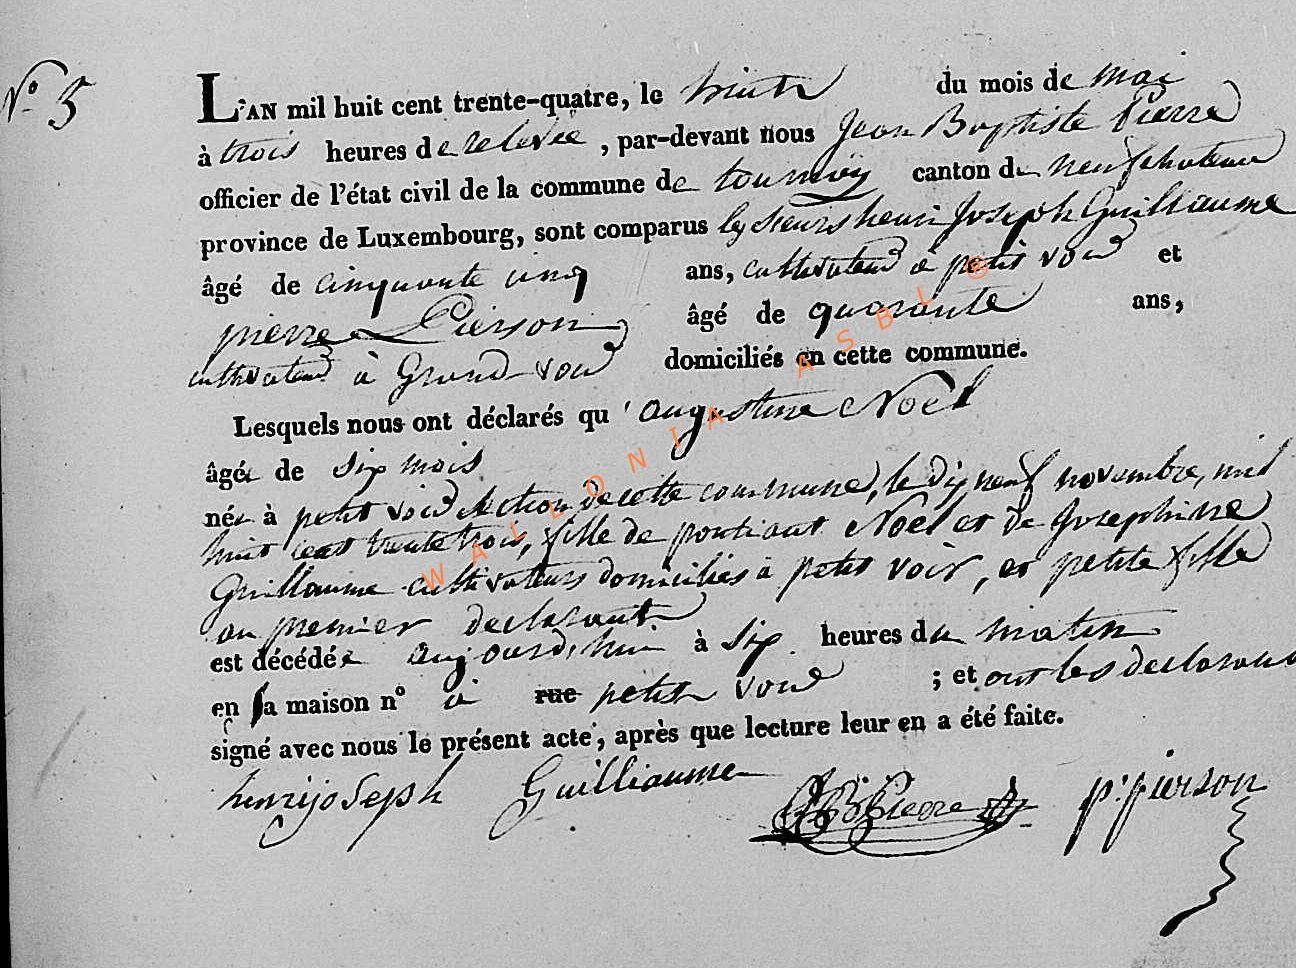 N° 5
L'AN mil huit cent trente-quatre, le huit du mois de mai
à trois heures de relevée, par-devant nous Jean Baptiste Pierre
officier de l'état civil de la commune de tournay canton de neufchateau
province de Luxembourg, sont comparus les sieurs henri Joseph Guillaume
âgé de cinquante cinq ans, cultivateur a petit voir et
pierre Pierson âgé de quarante ans,
cultivateur à Grand-voir domiciliés en cette commune.
Lesquels nous ont déclarés qu'augustine Noël
âgée de six mois
née à petit voir section de cette commune, le dix neuf novembre, mil
huit cent trente trois, fille de pontiant Noël et de Josephine
Guillaume cultivateurs domiciliés à petit voir, et petite fille
au premier declarant
est décédée aujourd'hui à six heures du matin
en sa maison n° à rue petit voir ; et ont les declarants
signé avec nous le présent acte, après que lecture leur en a été faite.
henrijoseph Guilliaume JB Pierre p. pierson
WALLONIA ASBL ©